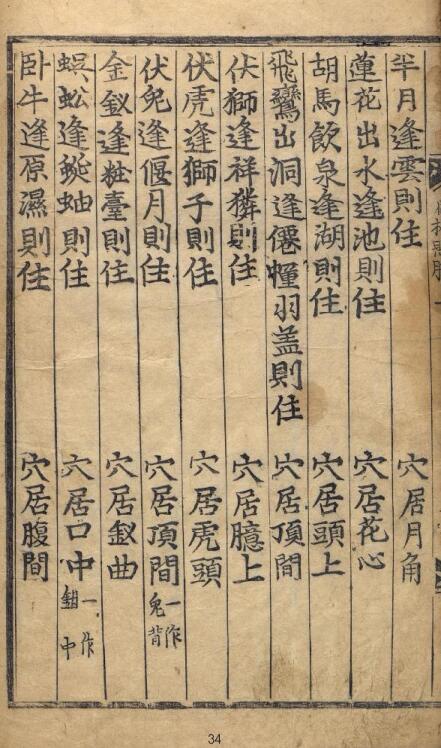 半月逢雲則住 穴居月角
蓮花出水逢池則住 穴居花心
胡馬飮泉逢湖則住 穴居頭上
飛鸞出洞逢僊幢羽盖則住 穴居頂間
伏獅逢祥獜則住 穴居臆上
伏虎逢獅子則住 穴居虎頭
伏兔逢偃月則住 穴居頂間一作兔背
金釵逢粧臺則住 穴居釵曲
蜈蚣逢蜒蚰則住 穴居口中一作鉗中
卧牛逢原濕則住 穴居腹間
34